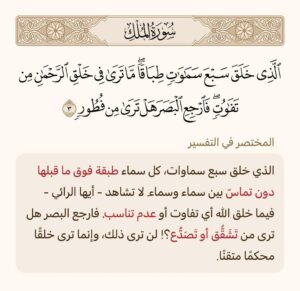 سُورَةُ المُلْكِ
ٱلَّذِى خَلَقَ سَبْعَ سَمَٰوَٰتٍ طِبَاقًا ۖ مَّا تَرَىٰ فِى خَلْقِ ٱلرَّحْمَٰنِ مِن
تَفَٰوُتٍ ۖ فَٱرْجِعِ ٱلْبَصَرَ هَلْ تَرَىٰ مِن فُطُورٍ ٣
المختصر في التفسير
الذي خلق سبع سماوات، كل سماء طبقة فوق ما قبلها
دون تماسّ بين سماء وسماء. لا تشاهد - أيها الرائي -
فيما خلق الله أي تفاوت أو عدم تناسب. فارجع البصر هل
ترى من تَشَقُّق أو تَصَدُّع؟! لن ترى ذلك، وإنما ترى خلقًا
محكمًا متقنًا.